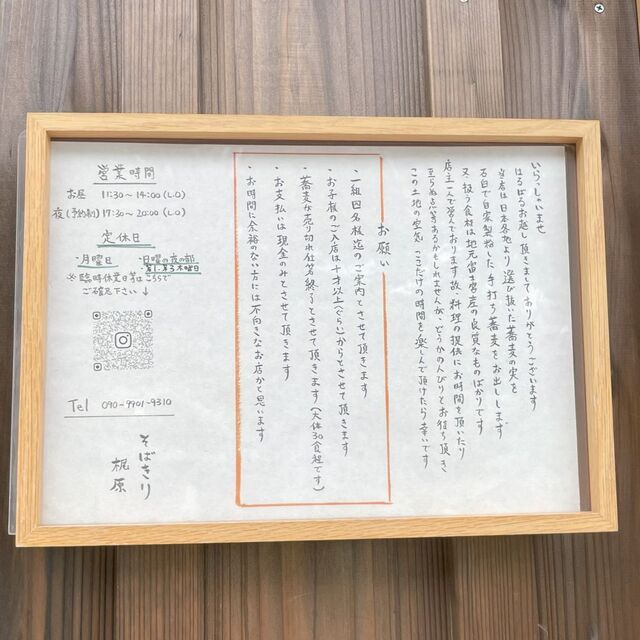 いらっしゃいませ
はるばるお越し頂きましてありがとうございます
当店は日本各地より選び抜いた蕎麦の実を
石臼で自家製粉した手打ち蕎麦をお出しします
又、扱う食材は地元富士宮産の良質なものばかりです
店主一人で営んでおります故、料理の提供にお時間を頂いたり
至らぬ点等あるかもしれませんが、どうかのんびりとお待ち頂き
この土地の空気、ここだけの時間を楽しんで頂けたら幸いです
お願い
・一組四名様迄のご案内とさせて頂きます
・お子様のご入店は十才以上(ぐらい)からとさせて頂きます
・蕎麦が売り切れ仕第終了とさせて頂きます(大体30食程です)
・お支払いは現金のみとさせて頂きます
・お時間に余裕のない方には不向きなお店かと思います
営業時間
お昼 11:30〜14:00(L.O)
夜(予約制)17:30〜20:00(L.O)
定休日
・月曜日 ・日曜の夜の部
・第1.第3木曜日
※臨時休業日等はこちらで
ご確認下さい↓
Tel 090-9901-9310
そばきり
梶原